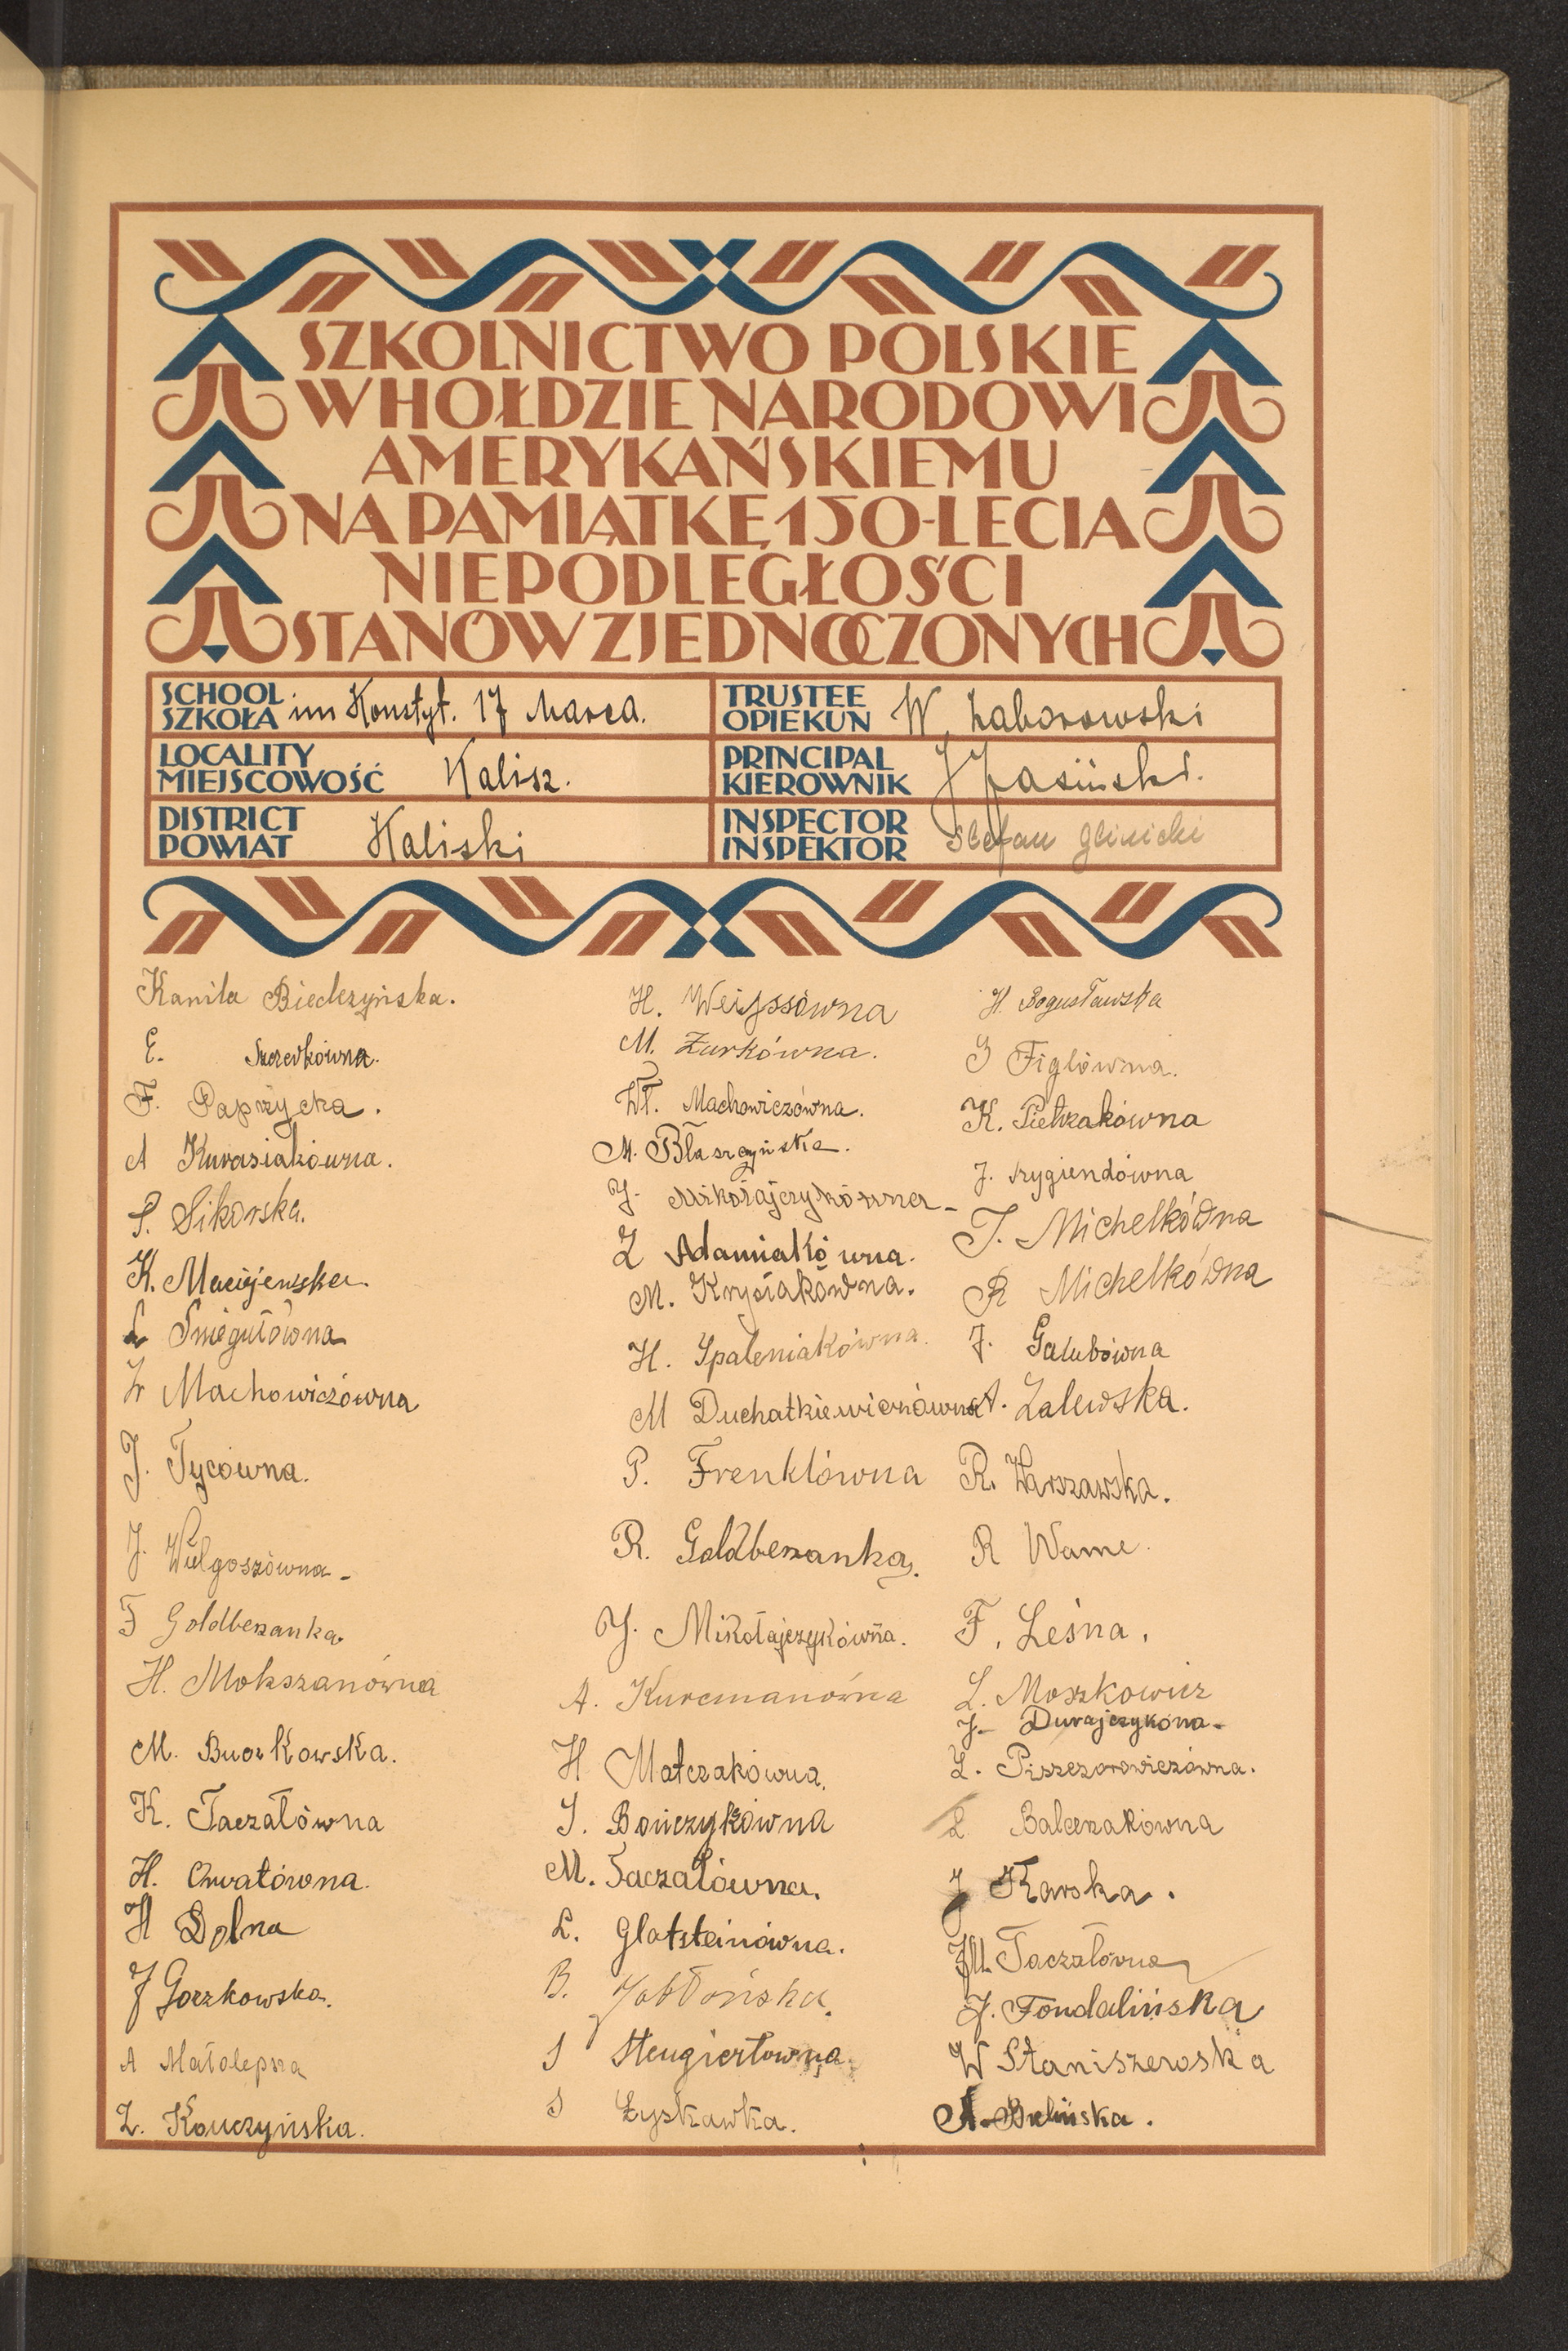 SZKOLNICTWO POLSKIE
W HOŁDZIE NARODOWI
AMERYKAŃSKIEMU
NA PAMIĄTKĘ 150-LECIA
NIEPODLEGŁOŚCI
STANÓW ZJEDNOCZONYCH
SCHOOL
SZKOŁA im Konstyt. 17 Marca.
TRUSTEE
OPIEKUN W Zaborowski
LOCALITY
MIEJSCOWOŚĆ Kalisz.
PRINCIPAL
KIEROWNIK J Jasiński.
DISTRICT
POWIAT Kaliski
INSPECTOR
INSPEKTOR Stefan Glinicki
Kamila Biedrzyńska.
E.
F. Paprzycka.
A Kurasiakówna.
S. Sikorska.
K. Maciejewska.
Ł Śmiegułówna
Z Machowiczówna
J. Tycówna.
J. Wielgoszówna-
F Goldberzanka.
H. Mokszanówna
M. Buczkowska.
K. Taczałówna
H. Chwatówna.
H Dolna
J Gorzkowska.
A Małolepsza
Z. Kończyńska.
H. Weissówna
M. Żurkówna.
Wł. Machowiczówna.
M. Błaszczyńska.
J. Mikołajczykówna-
Z Adamiakówna.
M. Krysiakówna.
H. Spaleniakówna.
M Duchatkiewiczówna
P. Frenklówna
R. Goldberzanka.
J. Mikołajczykówna.
A. Kurcmanówna
H Matczakówna.
J. Bończykówna
M. Taczałówna.
L. Glatsteinówna.
B. Jabłońska.
S Stengiertówna.
S Łyskawka.
H. Bogusławska
J Figlówna.
K. Pietrzakówna
J.
T. Michelkówna
R Michelkówna
J. Galubówna
A. Zalewska.
R. Warszawska.
R Wame.
F. Leśna.
L. Moszkowicz
J- Durajczykówna-
L.
L Balcerzakówna
J Karska.
M. Taczałówna
J. Fondalińska
W Staniszewska
A. Bielińska.